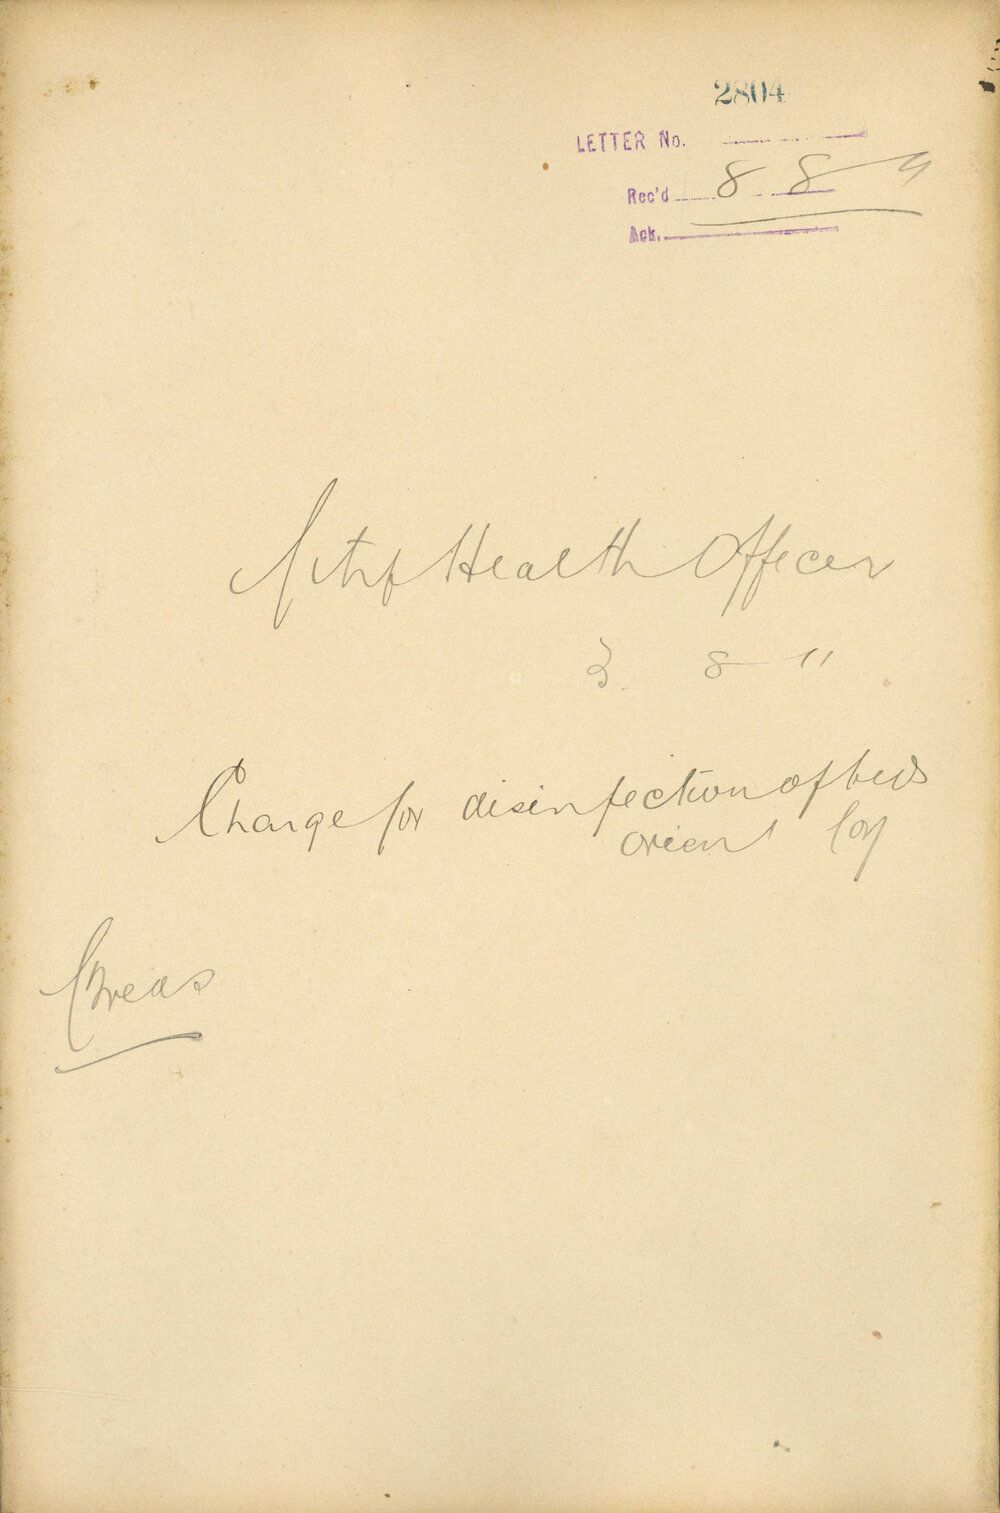 2804
LETTER No.
Rec'd 8 8 11
Ack.
City Health Officer
3 8 11
Charge for disinfection of beds
orient
Creas